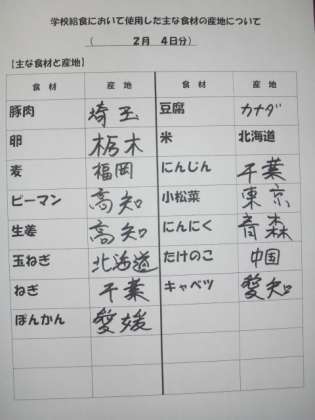 学校給食において使用した主な食材の産地について
( 2月 4日分)
【主な食材と産地】
食材 産地 食材 産地
豚肉 埼玉 豆腐 カナダ
卵 栃木 米 北海道
麦 福岡 にんじん 千葉
ピーマン 高知 小松菜 東京
生姜 高知 にんにく 青森
玉ねぎ 北海道 たけのこ 中国
ねぎ 千葉 キャベツ 愛知
ぽんかん 愛媛